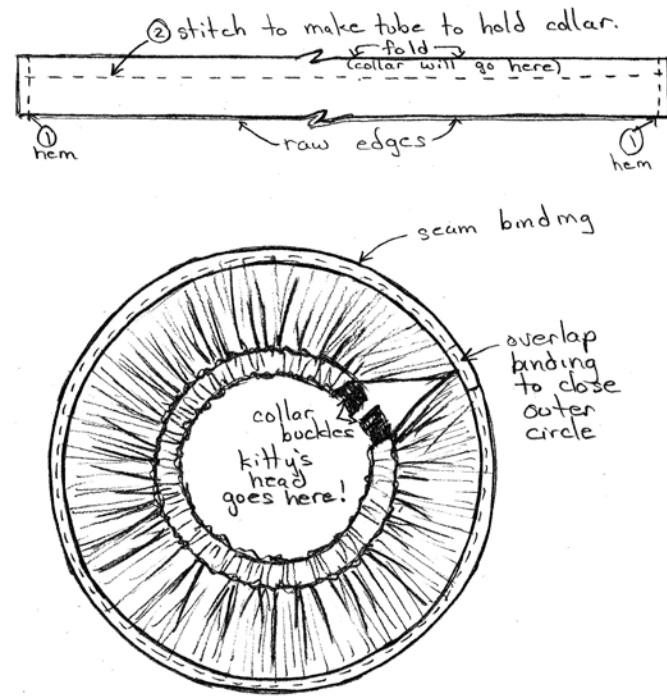 ② stitch to make tube to hold collar.
fold
(collar will go here)
① hem
raw edges
① hem
seam binding
overlap
binding
to close
outer
circle
collar
buckles
kitty's
head
goes here!